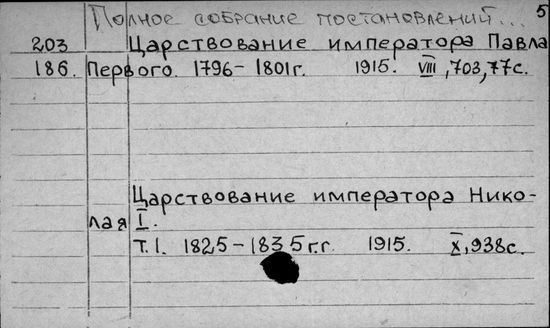 Полное собрание постановлений... 5
203 Царствование императора Павла
186. Первого. 1796-1801г. 1915. VIII, 703, 77с.
Царствование императора Нико-
лая I.
Т.1. 1825-1835г.г. 1915. X, 938с.